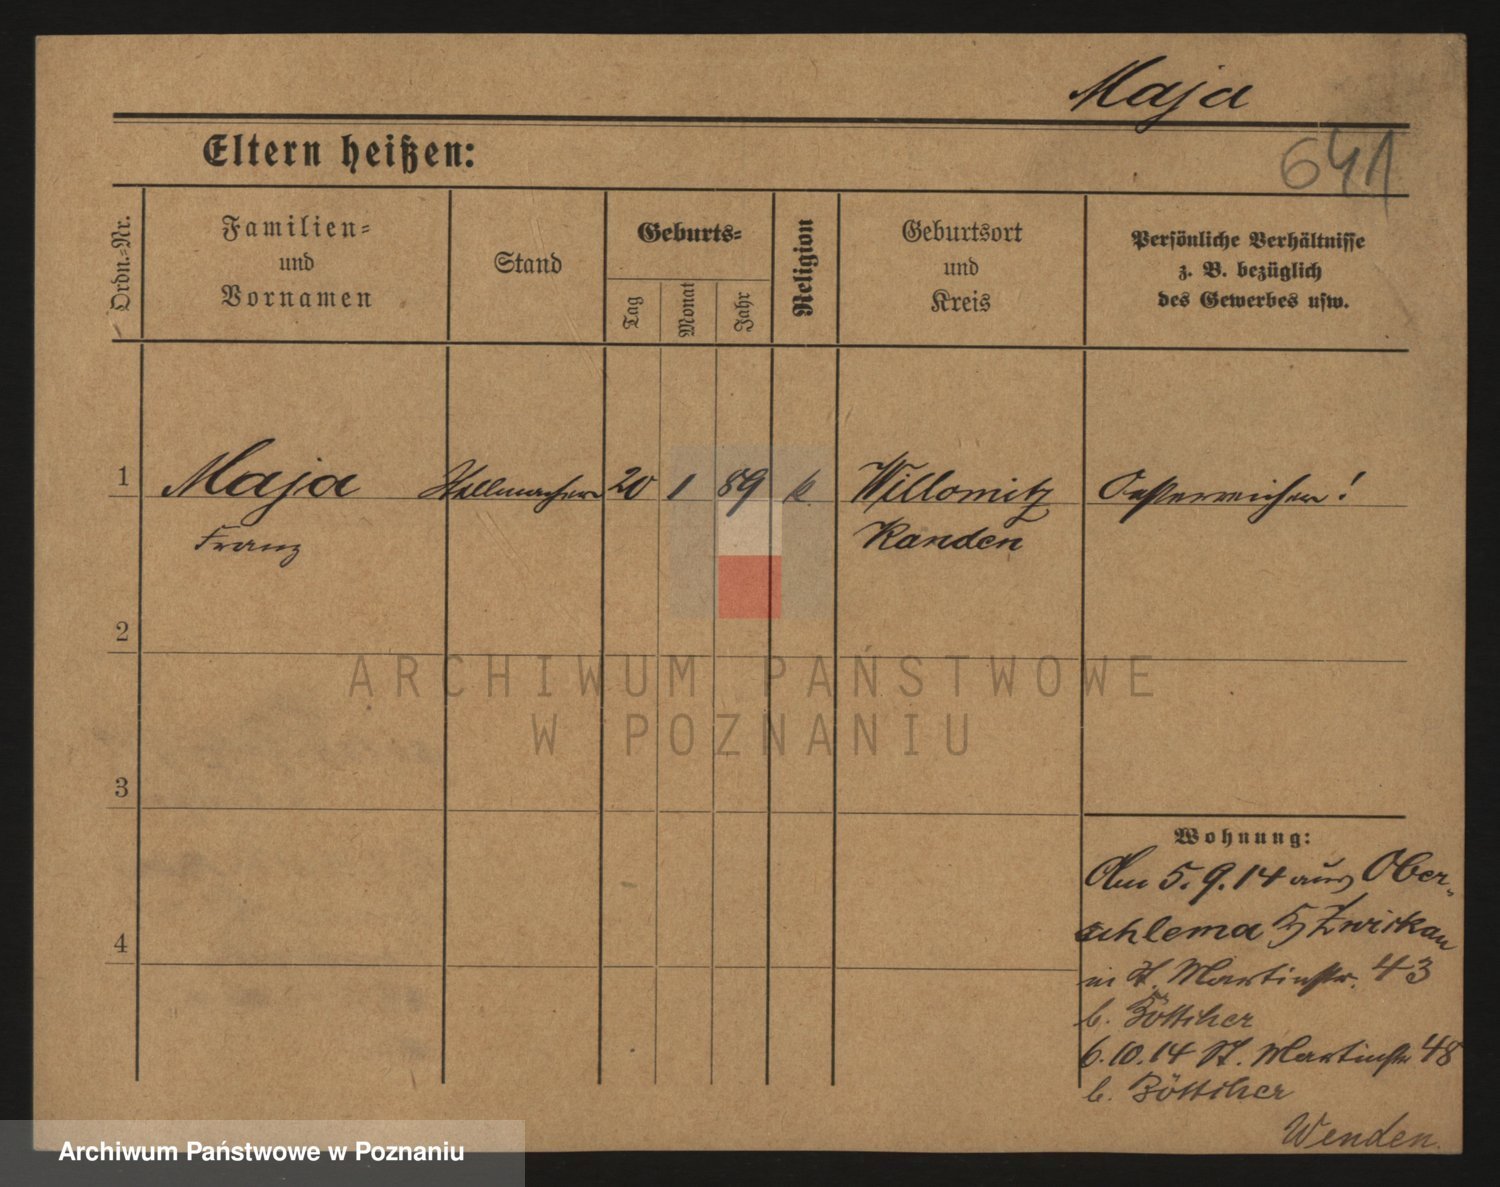 Maja
641
Eltern heißen:
Ordn.-Nr.
Familien-
und
Vornamen
Stand
Geburts-
Tag
Monat
Jahr
Religion
Geburtsort
und
Kreis
Persönliche Verhältnisse
z. B. bezüglich
des Gewerbes usw.
1 Maja Stellmacher 20 1 89 k Willomitz Oesterreicher!
Franz Kanden
2
ARCHIWUM PAŃSTWOWE
W POZNANIU
3
Wohnung:
Am 5.9.14 aus Ober-
4 schlema Zwickau
in St. Martinstr. 43
b. Böttcher
6.10.14 St. Martinstr 48
b. Böttcher
Wenden.
Archiwum Państwowe w Poznaniu